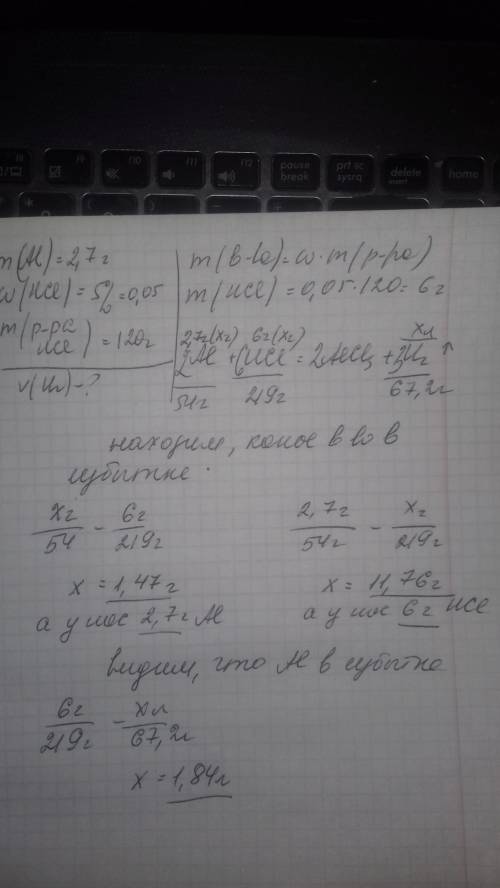 F8
F9
F10
F11
F12
pause break
prt sc sysrq
delete insert
home
m(Al)=2,7г
ω(HCl)=5%=0,05
m(р-ра HCl)=120г
V(H₂)-?
m(в-ва)=ω·m(р-ра)
m(HCl)=0,05·120=6г
2,7г(xг) 6г(xг) xл
2Al+6HCl=2AlCl₃+3H₂↑
54г 219г 67,2г
находим, какое в во в
избытке.
xг/54 - 6г/219г
2,7г/54г - xг/219г
x=1,47г
x=11,76г
а у нас 2,7г Al
а у нас 6г HCl
видим, что Al в избытке
6г/219г - xл/67,2л
x=1,84л